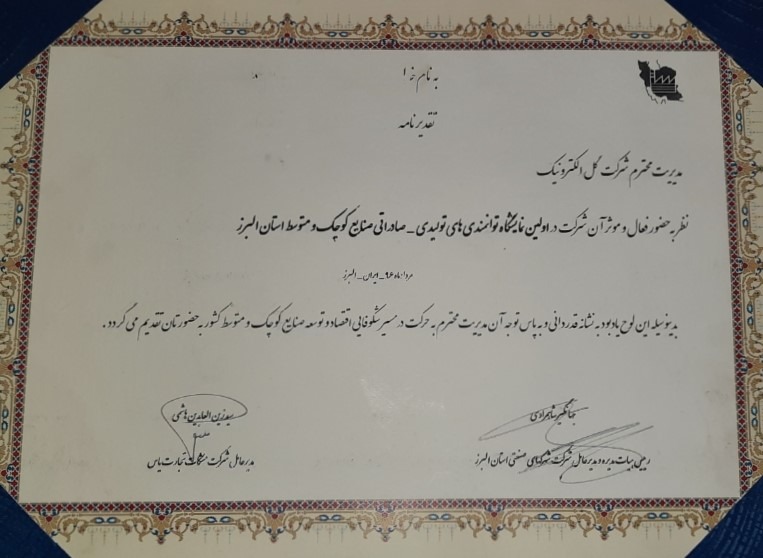 به نام خدا
تقدیرنامه
مدیریت محترم شرکت گل الکترونیک
نظر به حضور فعال و موثر آن شرکت در اولین نمایشگاه توانمندی های تولیدی _ صادراتی صنایع کوچک و متوسط استان البرز
مرداد ماه ۹۶ _ ایران _ البرز
بدینوسیله این لوح یادبود به نشانه قدردانی و به پاس توجه آن مدیریت محترم به حرکت در مسیر شکوفایی اقتصاد و توسعه صنایع کوچک و متوسط کشور به حضورتان تقدیم می گردد .
جهانگیر شاهمرادی
رئیس هیات مدیره و مدیرعامل شرکت شهرکهای صنعتی استان البرز
سید زین العابدین هاشمی
مدیرعامل شرکت تجارت یاس